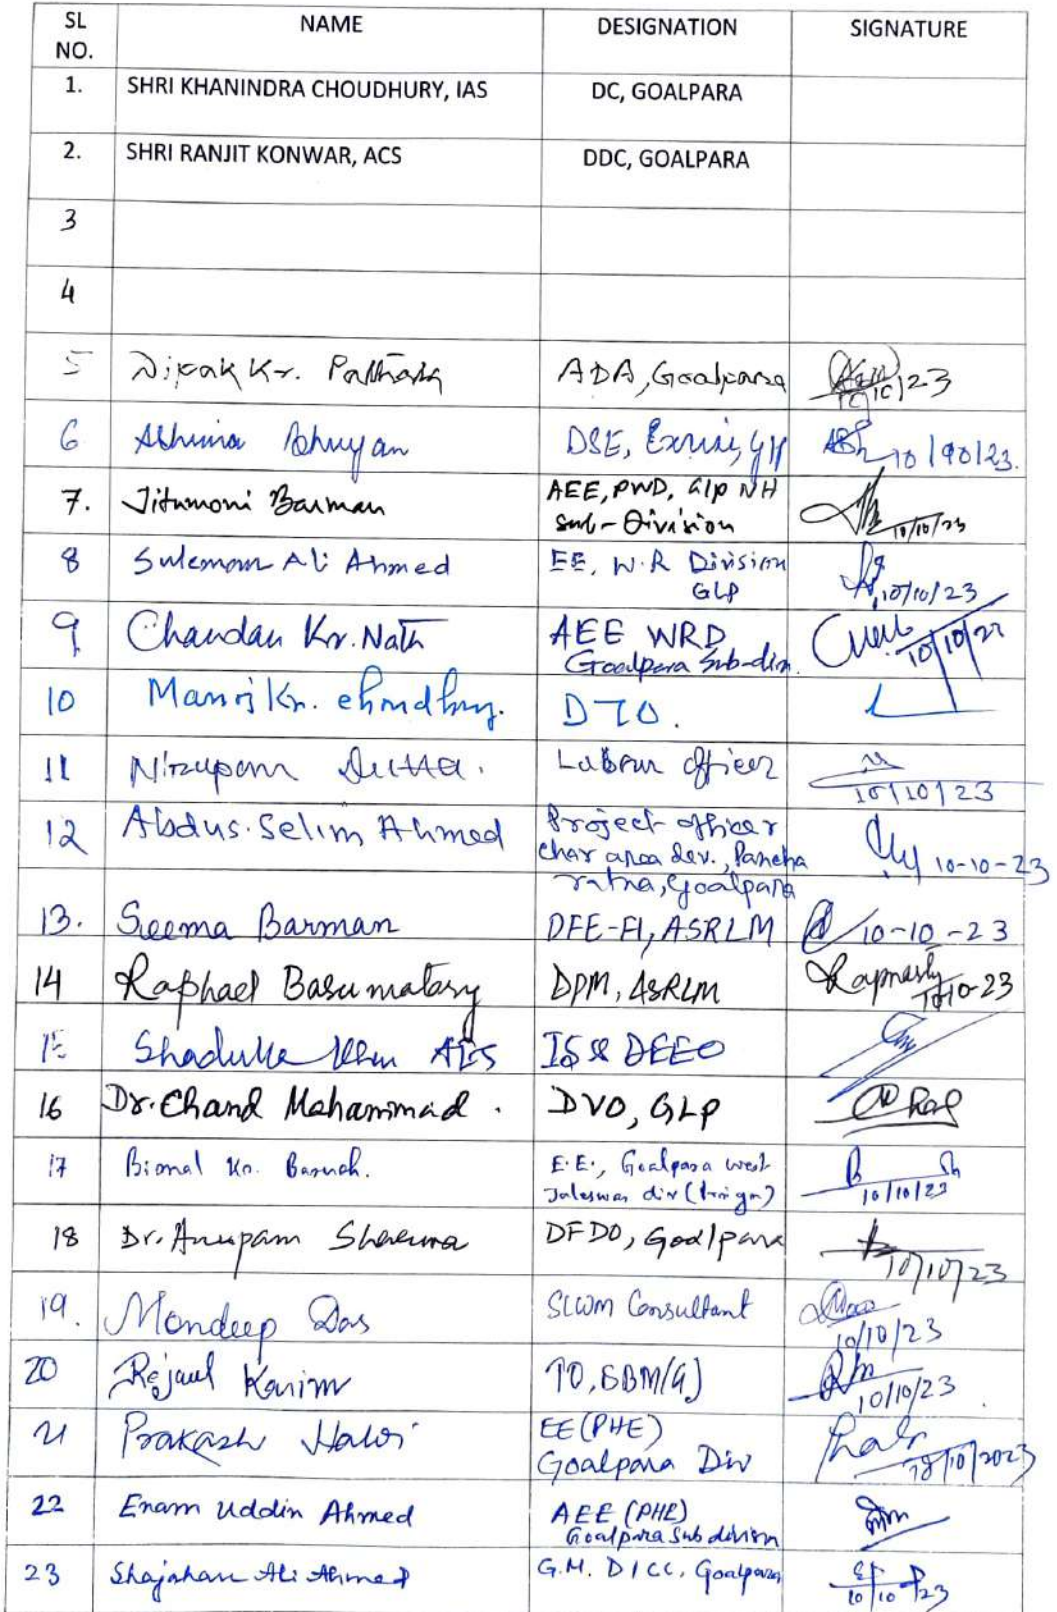 SL NO. NAME DESIGNATION SIGNATURE
1. SHRI KHANINDRA CHOUDHURY, IAS DC, GOALPARA
2. SHRI RANJIT KONWAR, ACS DDC, GOALPARA
3
4
5 Dipak Kr. Pathak ADA, Goalpara 10/10/23
6 Ashima Bhuyan DSE, 10/10/23.
7. Jitumoni Barman AEE, PWD, Glp NH
Sub-Division 10/10/23
8 Suleman Ali Ahmed EE, W.R Division
GLP 10/10/23
9 Chandan Kr. Nath AEE WRD
Goalpara Sub-divn. 10/10/23
10 Manoj Kr. Choudhury. DTO.
11 Nirupam Dutta. Labour officer
10/10/23
12 Abdus. Selim Ahmed Project officer
Char area dev., Pancha 10-10-23
ratna, Goalpara
13. Seema Barman DFE-FI, ASRLM 10-10-23
14 Raphael Basumatary DPM, ASRLM 10-10-23
15 Shadulla Khan AES IS & DEEO
16 Dr. Chand Mohammad. DVO, GLP
17 Bimal Kr. Baruah. E.E., Goalpara west
Jaleswar div (Irrign) 10/10/23
18 Dr. Anupam Sharma DFDO, Goalpara
10/10/23
19. Mondeep Das SLWM Consultant
10/10/23
20 Rejaul Karim TO, SBM(G)
10/10/23
21 Prakash Haloi EE (PHE)
Goalpara Div 10/10/2023
22 Enam Uddin Ahmed AEE (PHE)
Goalpara Sub division
23 Shajahan Ali Ahmed G.M. DICC, Goalpara
10/10/23